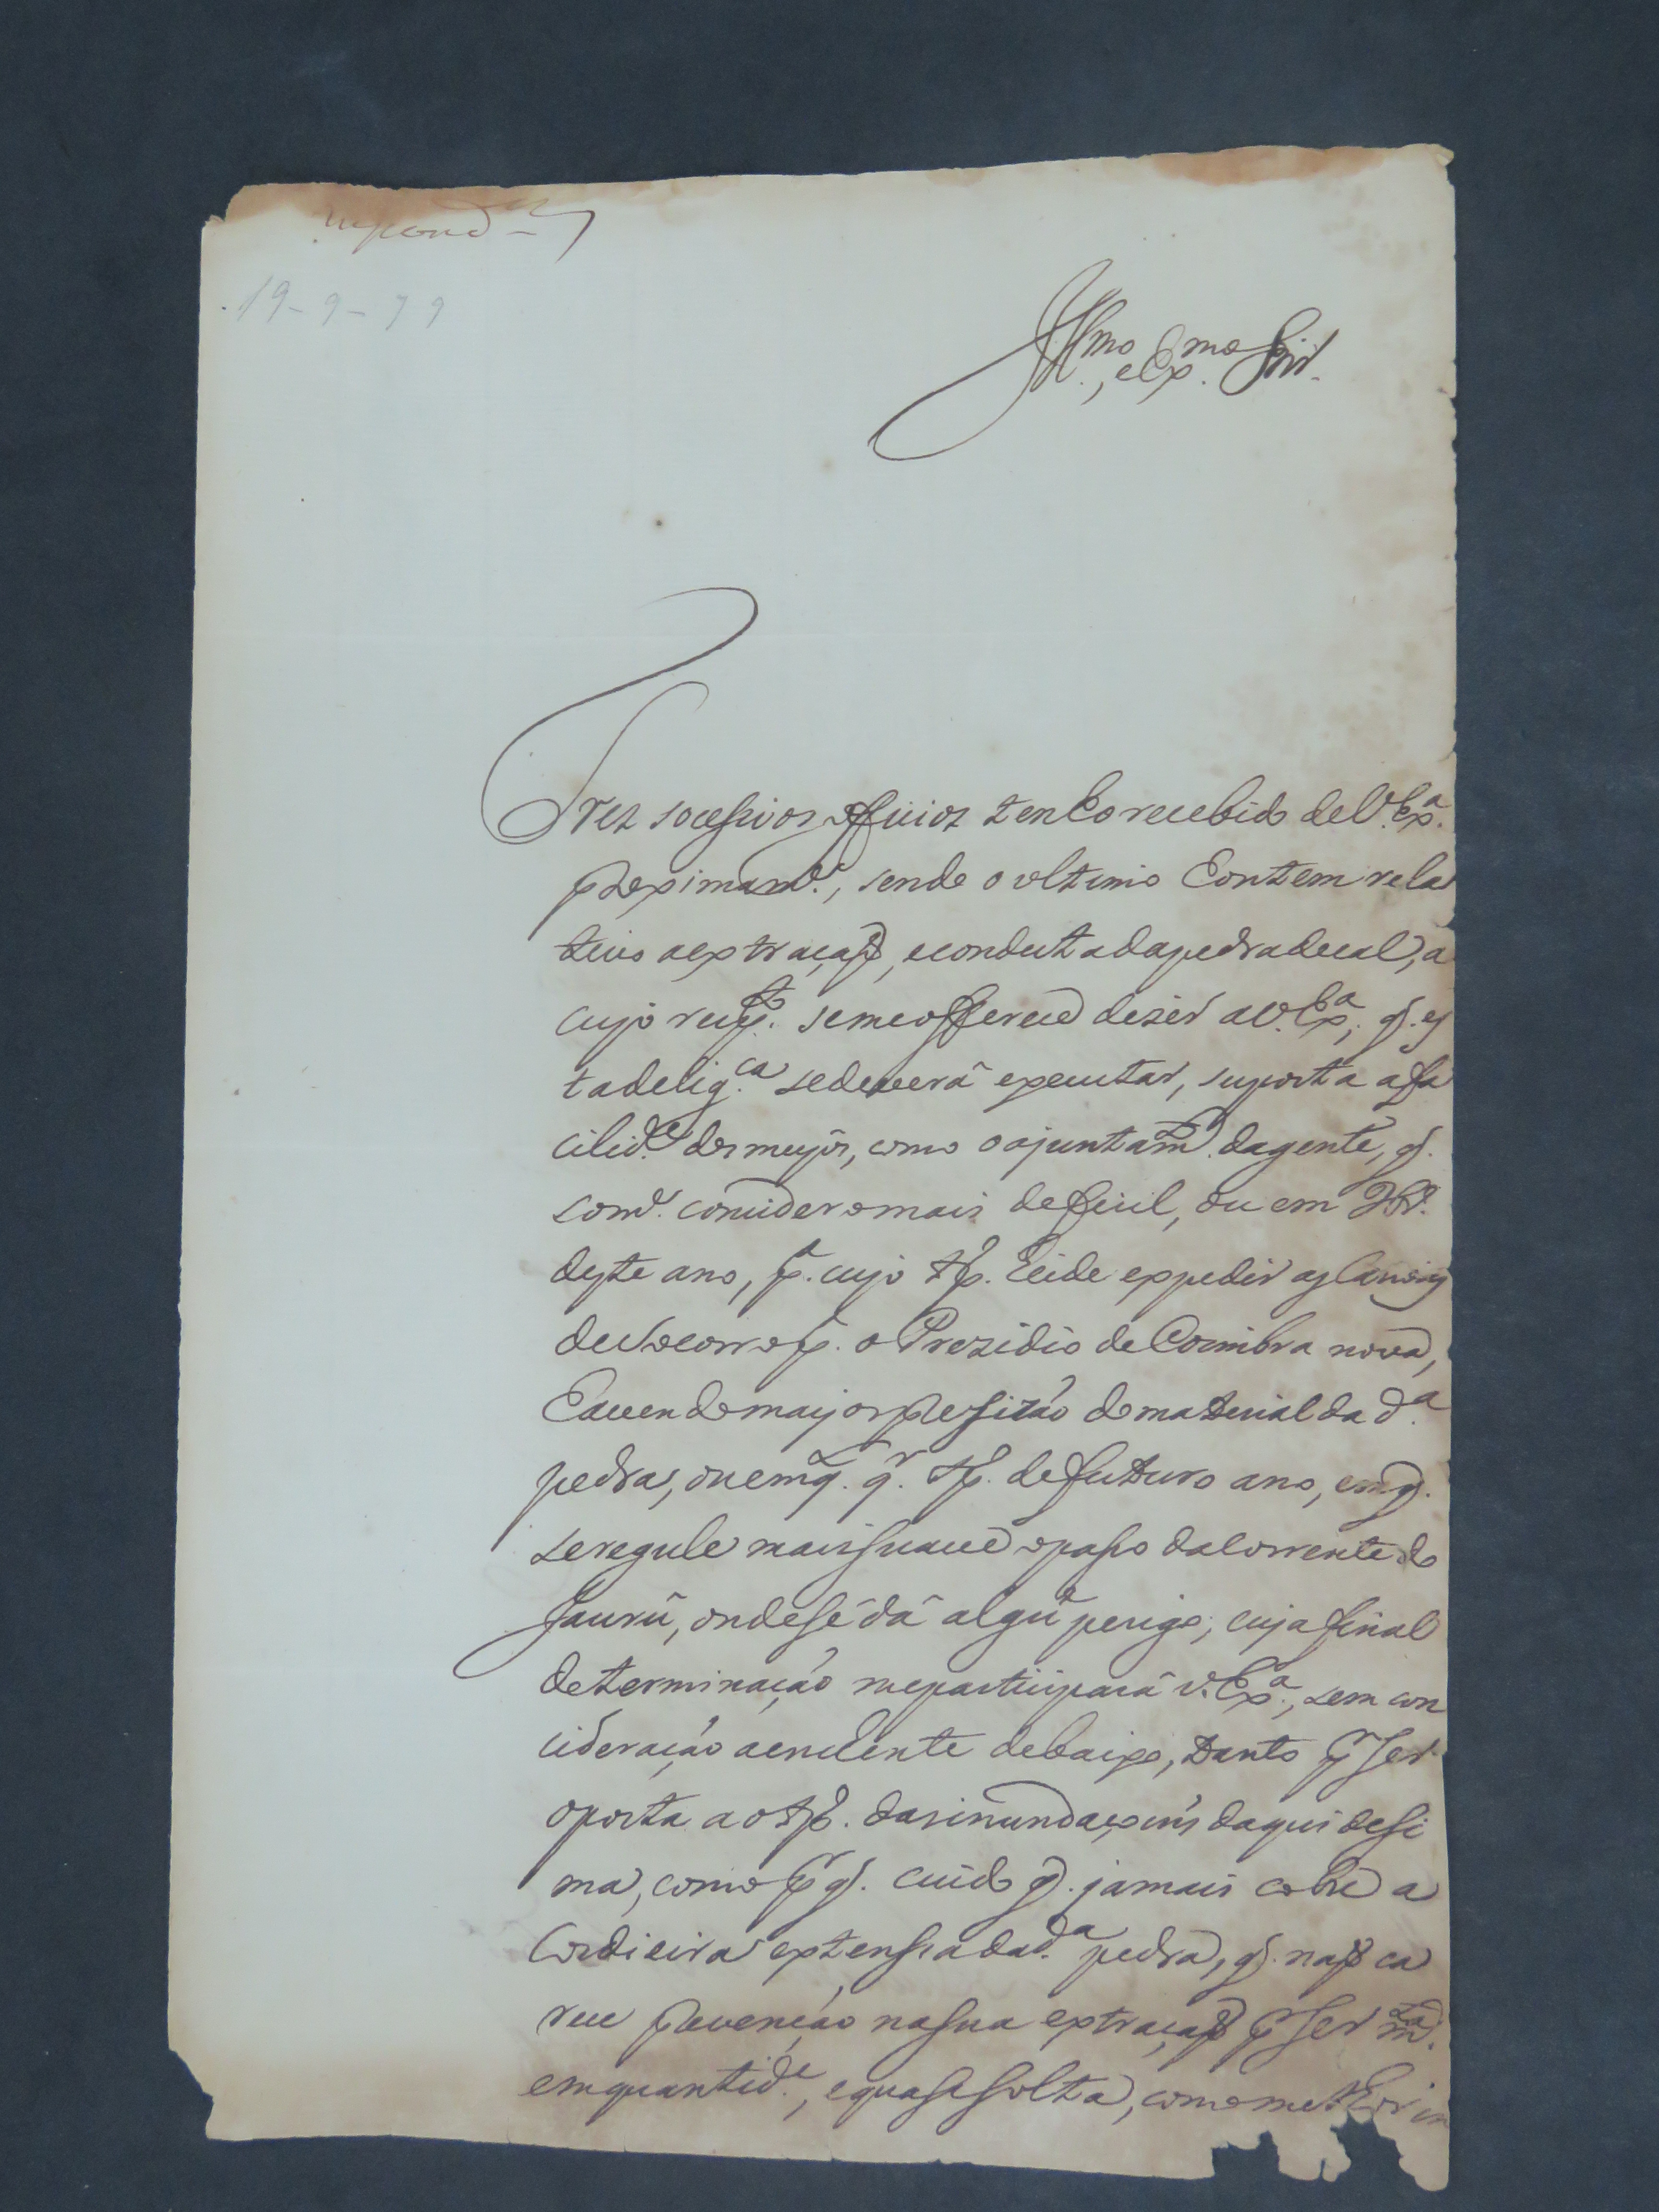 respond.
19-9-79
Ill.mo, e Ex.mo Snr.
Tres socesivos officios tenho recebido de V. Ex.a
proximam.e, sendo o ultimo hontem rela
tivo a extraçaõ, e conduta da pedra de cal, a
cujo resp.to se me offerece dizer a V. Ex.a, q. es
ta delig.ca se deverá executar, suposta a fa
cilid.e dos meyos, como o ajuntam.to da gente, q.
som.e considero mais deficil, ou em
deste ano, p.a cujo tp.o heide expedir as Canoas
de Socorro p.a o Prezidio de Coimbra nova,
havendo mayor persizaõ do material da d.a
pedra, ou em q. q.r tp.o de futuro ano, em q.
se regule mais suave o paso da Corrente do
Jaurú, onde se dá algũ perigo, cuja final
determinaçaõ me participará V. Ex.a, sem con
cideraçaõ a enchente de baixo, tanto p.r ser
oposta ao tp.o das inundaçoins daqui de si
ma, como p.r q. cuido q. jamais cobre a
Cordieira extensa da d.a pedra, q. naõ ca
rece prevençaõ na sua extraçaõ p.r ser
em quantid.e, e quasi solta, como me